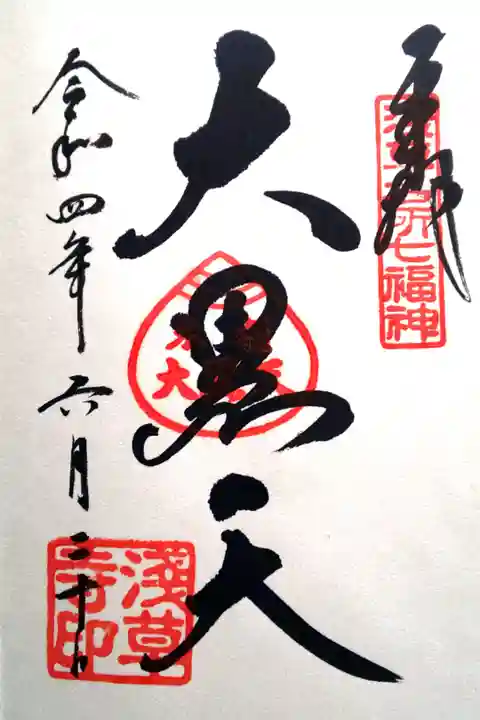 奉拝
浅草名所七福神
大黒天
令和四年六月二十日
浅草
寺印